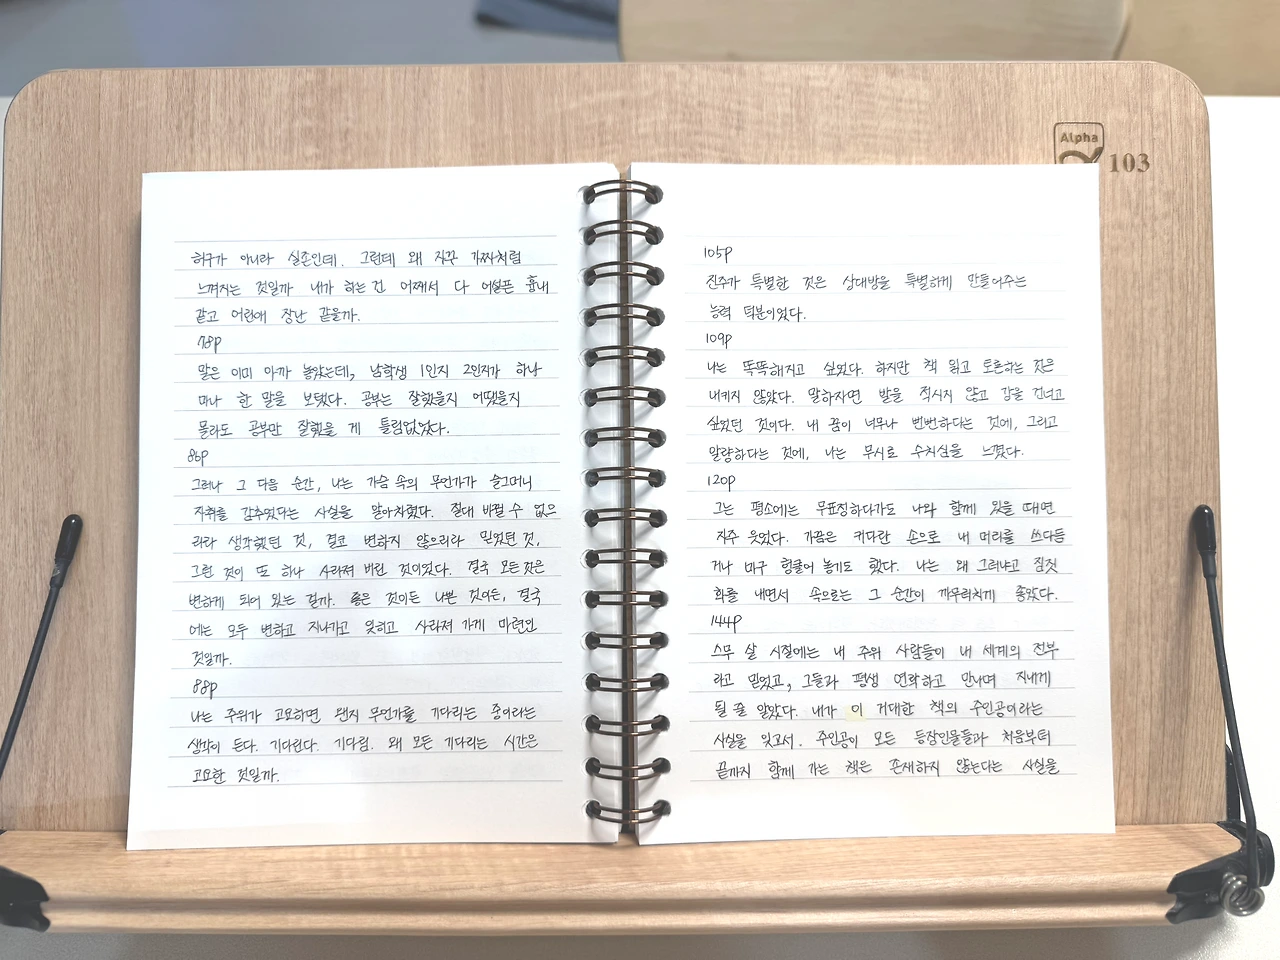 허구가 아니라 실존인데. 그런데 왜 자꾸 가짜처럼
느껴지는 것일까 내가 하는 건 어째서 다 어설픈 흉내
같고 어린애 장난 같을까.
78p
말은 이미 아까 놓았는데, 남학생 1인지 2인지가 하나
마나 한 말을 보탰다. 공부는 잘했을지 어땠을지
몰라도 공부만 잘했을 게 틀림없었다.
86p
그러나 그 다음 순간, 나는 가슴 속의 무언가가 슬그머니
자취를 감추었다는 사실을 알아차렸다. 절대 바뀔 수 없으
리라 생각했던 것, 결코 변하지 않으리라 믿었던 것,
그런 것이 또 하나 사라져 버린 것이었다. 결국 모든 것은
변하게 되어 있는 걸까. 좋은 것이든 나쁜 것이든, 결국
에는 모두 변하고 지나가고 잊히고 사라져 가게 마련인
것일까.
88p
나는 주위가 고요하면 왠지 무언가를 기다리는 중이라는
생각이 든다. 기다린다. 기다림. 왜 모든 기다리는 시간은
고요한 것일까.
Alpha
103
105p
진주가 특별한 것은 상대방을 특별하게 만들어주는
능력 덕분이었다.
109p
나는 똑똑해지고 싶었다. 하지만 책 읽고 토론하는 것은
내키지 않았다. 말하자면 발을 적시지 않고 강을 건너고
싶었던 것이다. 내 꿈이 너무나 뻔뻔하다는 것에, 그리고
알량하다는 것에, 나는 무시로 수치심을 느꼈다.
120p
그는 평소에는 무표정하다가도 나와 함께 있을 때면
자주 웃었다. 가끔은 커다란 손으로 내 머리를 쓰다듬
거나 마구 헝클어 놓기도 했다. 나는 왜 그러냐고 짐짓
화를 내면서 속으로는 그 순간이 까무러치게 좋았다.
144p
스무 살 시절에는 내 주위 사람들이 내 세계의 전부
라고 믿었고, 그들과 평생 연락하고 만나며 지내게
될 줄 알았다. 내가 이 거대한 책의 주인공이라는
사실을 잊고서. 주인공이 모든 등장인물들과 처음부터
끝까지 함께 가는 책은 존재하지 않는다는 사실을